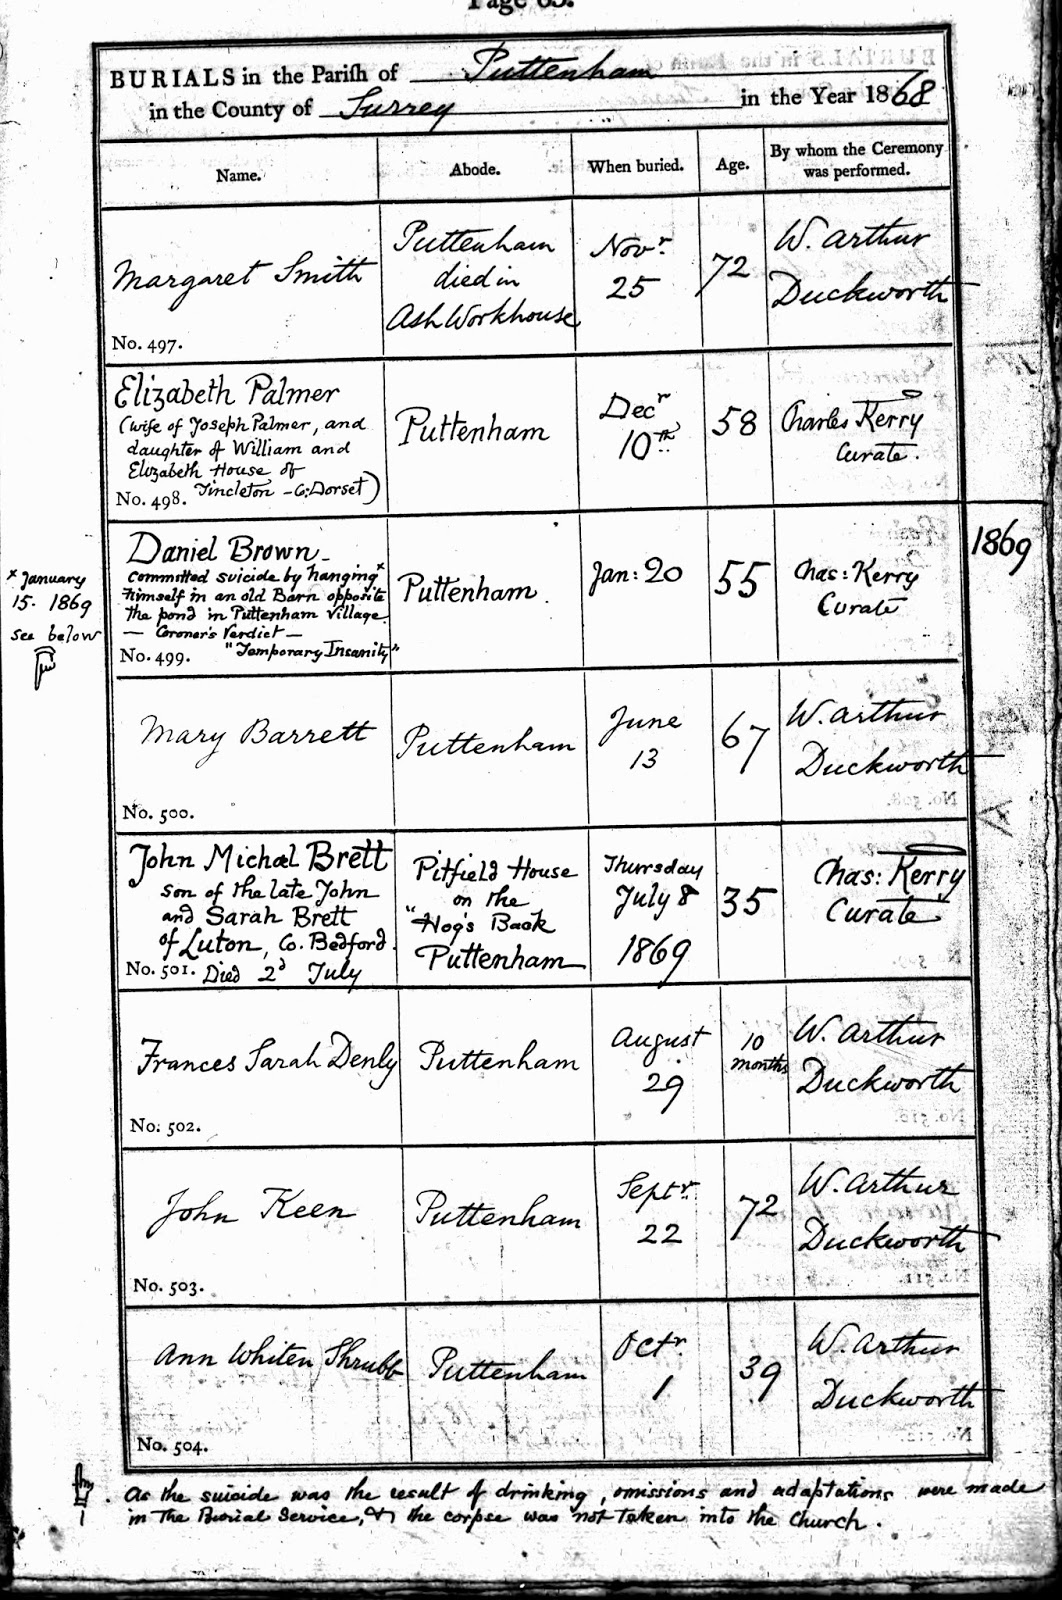 Page 63.
BURIALS in the Parish of Puttenham
in the County of Surrey in the Year 1868
Name. Abode. When buried. Age. By whom the Ceremony was performed.
Margaret Smith
No. 497.
Puttenham
died in
Ash Workhouse
Novr.
25
72
W. Arthur
Duckworth
Elizabeth Palmer
(wife of Joseph Palmer, and
daughter of William and
Elizabeth House of
No. 498. Tincleton - C: Dorset)
Puttenham
Decr
10th
58
Charles Kerry
Curate.
1869
x January
15. 1869
see below
Daniel Brown -
committed suicide by hanging x
himself in an old Barn opposite
the pond in Puttenham Village
— Coroner's Verdict —
No. 499. "Temporary Insanity"
Puttenham.
Jan: 20
55
Chas: Kerry
Curate
Mary Barrett
No. 500.
Puttenham
June
13
67
W. Arthur
Duckworth
John Michael Brett
son of the late John
and Sarah Brett
of Luton, Co. Bedford.
No. 501. Died 2d July
Pitfield House
on the
"Hog's Back
Puttenham
Thursday
July 8
1869
35
Chas: Kerry
Curate
Frances Sarah Denly
No. 502.
Puttenham
August
29
10
months
W. Arthur
Duckworth
John Keen
No. 503.
Puttenham
Septr.
22
72
W. Arthur
Duckworth
Ann Whiten Shrubb
No. 504.
Puttenham
Octr.
1
39
W. Arthur
Duckworth
As the suicide was the result of drinking, omissions and adaptations were made
in the Burial Service, & the corpse was not taken into the Church.